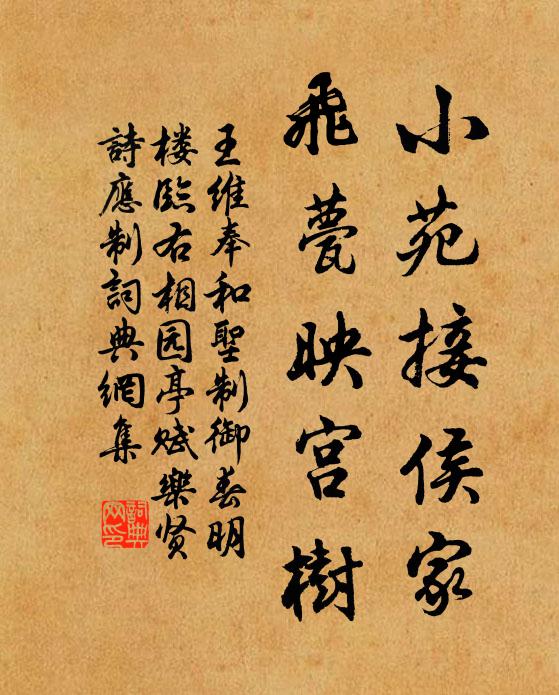 小苑接侯家
飛甍映宮樹
王維奉和聖制御春明
楼臨右相园亭賦樂贤
詩應制詞典網集
詞典
网印